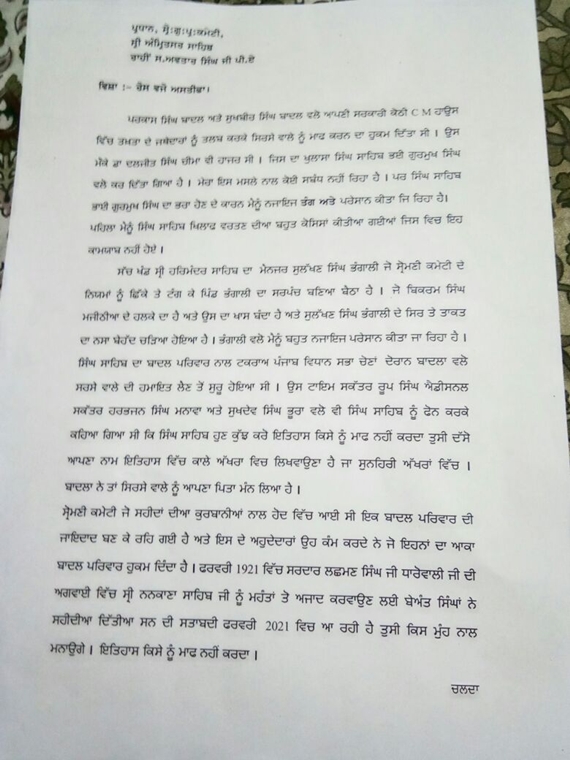 ਪ੍ਰਧਾਨ, ਸ੍ਰੋ:ਗੁ:ਪ੍ਰ:ਕਮੇਟੀ,
ਸ੍ਰੀ ਅੰਮ੍ਰਿਤਸਰ ਸਾਹਿਬ
ਰਾਹੀਂ ਸ.ਅਵਤਾਰ ਸਿੰਘ ਜੀ ਪੀ.ਏ
ਵਿਸ਼ਾ :- ਰੋਸ ਵਜੋ ਅਸਤੀਫਾ।
ਪਰਕਾਸ ਸਿੰਘ ਬਾਦਲ ਅਤੇ ਸੁਖਬੀਰ ਸਿੰਘ ਬਾਦਲ ਵਲੋ ਆਪਣੀ ਸਰਕਾਰੀ ਕੋਠੀ C M ਹਾਉਸ
ਵਿੱਚ ਤਖਤਾ ਦੇ ਜਥੇਦਾਰਾਂ ਨੂੰ ਤਲਬ ਕਰਕੇ ਸਿਰਸੇ ਵਾਲੇ ਨੂੰ ਮਾਫ ਕਰਨ ਦਾ ਹੁਕਮ ਦਿੱਤਾ ਸੀ । ਉਸ
ਮੌਕੇ ਡਾ ਦਲਜੀਤ ਸਿੰਘ ਚੀਮਾ ਵੀ ਹਾਜਰ ਸੀ । ਜਿਸ ਦਾ ਖੁਲਾਸਾ ਸਿੰਘ ਸਾਹਿਬ ਭਈ ਗੁਰਮੁਖ ਸਿੰਘ
ਵਲੋ ਕਰ ਦਿੱਤਾ ਗਿਆ ਹੈ । ਮੇਰਾ ਇਸ ਮਸਲੇ ਨਾਲ ਕੋਈ ਸਬੰਧ ਨਹੀਂ ਰਿਹਾ ਹੈ । ਪਰ ਸਿੰਘ ਸਾਹਿਬ
ਭਾਈ ਗੁਰਮੁਖ ਸਿੰਘ ਦਾ ਭਰਾ ਹੋਣ ਦੇ ਕਾਰਨ ਮੈਨੂੰ ਨਜਾਇਜ ਤੰਗ ਅਤੇ ਪਰੇਸਾਨ ਕੀਤਾ ਜਿ ਰਿਹਾ ਹੈ।
ਪਹਿਲਾ ਮੈਨੂੰ ਸਿੰਘ ਸਾਹਿਬ ਖਿਲਾਫ ਵਰਤਣ ਦੀਆ ਬਹੁਤ ਕੋਸਿਸਾਂ ਕੀਤੀਆ ਗਈਆਂ ਜਿਸ ਵਿਚ ਇਹ
ਕਾਮਯਾਬ ਨਹੀਂ ਹੋਏ ।
ਸੱਚ ਖੰਡ ਸ੍ਰੀ ਹਰਿਮੰਦਰ ਸਾਹਿਬ ਦਾ ਮੈਨਜਰ ਸੁਲੱਖਣ ਸਿੰਘ ਭੰਗਾਲੀ ਜੋ ਸ੍ਰੋਮਣੀ ਕਮੇਟੀ ਦੇ
ਨਿਯਮਾਂ ਨੂੰ ਛਿੱਕੇ ਤੇ ਟੰਗ ਕੇ ਪਿੰਡ ਭੰਗਾਲੀ ਦਾ ਸਰਪੰਚ ਬਣਿਆ ਬੈਠਾ ਹੈ । ਜੋ ਬਿਕਰਮ ਸਿੰਘ
ਮਜੀਠੀਆ ਦੇ ਹਲਕੇ ਦਾ ਹੈ ਅਤੇ ਉਸ ਦਾ ਖਾਸ ਬੰਦਾ ਹੈ ਅਤੇ ਸੁਲੱਖਣ ਸਿੰਘ ਭੰਗਾਲੀ ਦੇ ਸਿਰ ਤੇ ਤਾਕਤ
ਦਾ ਨਸਾ ਬੇਹੱਦ ਚੜਿਆ ਹੋਇਆ ਹੈ । ਭੰਗਾਲੀ ਵਲੋ ਮੈਨੂੰ ਬਹੁਤ ਨਜਾਇਜ ਪਰੇਸਾਨ ਕੀਤਾ ਜਾ ਰਿਹਾ ਹੈ ।
ਸਿੰਘ ਸਾਹਿਬ ਦਾ ਬਾਦਲ ਪਰਿਵਾਰ ਨਾਲ ਟਕਰਾਅ ਪੰਜਾਬ ਵਿਧਾਨ ਸਭਾ ਚੋਣਾਂ ਦੋਰਾਨ ਬਾਦਲਾ ਵਲੋ
ਸਰਸੇ ਵਾਲੇ ਦੀ ਹਮਾਇਤ ਲੈਣ ਤੋਂ ਸੁਰੂ ਹੋਇਆ ਸੀ । ਉਸ ਟਾਇਮ ਸਕੱਤਰ ਰੂਪ ਸਿੰਘ ਐਡੀਸਨਲ
ਸਕੱਤਰ ਹਰਭਜਨ ਸਿੰਘ ਮਨਾਵਾ ਅਤੇ ਸੁਖਦੇਵ ਸਿੰਘ ਭੂਰਾ ਵਲੋ ਵੀ ਸਿੰਘ ਸਾਹਿਬ ਨੂੰ ਫੋਨ ਕਰਕੇ
ਕਹਿਆ ਗਿਆ ਸੀ ਕਿ ਸਿੰਘ ਸਾਹਿਬ ਹੁਣ ਕੁੱਝ ਕਰੋ ਇਤਿਹਾਸ ਕਿਸੇ ਨੂੰ ਮਾਫ ਨਹੀਂ ਕਰਦਾ ਤੁਸੀ ਦੱਸੋ
ਆਪਣਾ ਨਾਮ ਇਤਿਹਾਸ ਵਿੱਚ ਕਾਲੇ ਅੱਖਰਾ ਵਿਚ ਲਿਖਵਾਉਣਾ ਹੈ ਜਾ ਸੁਨਹਿਰੀ ਅੱਖਰਾਂ ਵਿੱਚ ।
ਬਾਦਲਾ ਨੇ ਤਾਂ ਸਿਰਸੇ ਵਾਲੇ ਨੂੰ ਆਪਣਾ ਪਿਤਾ ਮੰਨ ਲਿਆ ਹੈ ।
ਸ੍ਰੋਮਣੀ ਕਮੇਟੀ ਜੋ ਸਹੀਦਾਂ ਦੀਆ ਕੁਰਬਾਨੀਆਂ ਨਾਲ ਹੋਦ ਵਿੱਚ ਆਈ ਸੀ ਇਕ ਬਾਦਲ ਪਰਿਵਾਰ ਦੀ
ਜਾਇਦਾਦ ਬਣ ਕੇ ਰਹਿ ਗਈ ਹੈ ਅਤੇ ਇਸ ਦੇ ਅਹੁਦੇਦਾਰਾਂ ਉਹ ਕੰਮ ਕਰਦੇ ਨੇ ਜੋ ਇਹਨਾਂ ਦਾ ਆਕਾ
ਬਾਦਲ ਪਰਿਵਾਰ ਹੁਕਮ ਦਿੰਦਾ ਹੈ । ਫਰਵਰੀ 1921 ਵਿੱਚ ਸਰਦਾਰ ਲਛਮਣ ਸਿੰਘ ਜੀ ਧਾਰੋਵਾਲੀ ਜੀ ਦੀ
ਅਗਵਾਈ ਵਿੱਚ ਸ੍ਰੀ ਨਨਕਾਣਾ ਸਾਹਿਬ ਜੀ ਨੂੰ ਮਹੰਤਾਂ ਤੋ ਅਜਾਦ ਕਰਵਾਉਣ ਲਈ ਬੇਅੰਤ ਸਿੰਘਾਂ ਨੇ
ਸਹੀਦੀਆ ਦਿੱਤੀਆ ਸਨ ਦੀ ਸਤਾਬਦੀ ਫਰਵਰੀ 2021 ਵਿਚ ਆ ਰਹੀ ਹੈ ਤੁਸੀ ਕਿਸ ਮੂੰਹ ਨਾਲ
ਮਨਾਉਗੇ । ਇਤਿਹਾਸ ਕਿਸੇ ਨੂੰ ਮਾਫ ਨਹੀਂ ਕਰਦਾ ।
ਚਲਦਾ